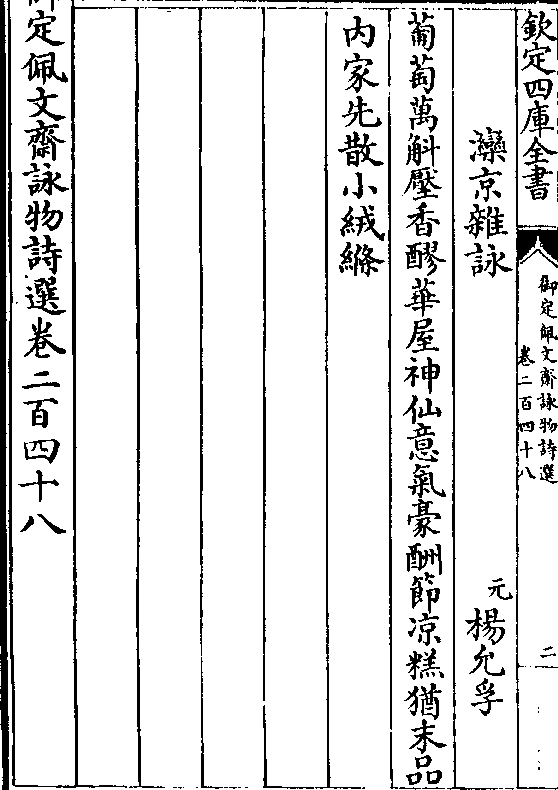 欽定四庫全書
御定佩文齋詠物詩選
卷二百四十八
二
灤京雜詠
元楊允孚
葡萄萬斛壓香醪華屋神仙意氣豪酬節凉糕猶末品
内家先散小絨縧
御定佩文齋詠物詩選卷二百四十八